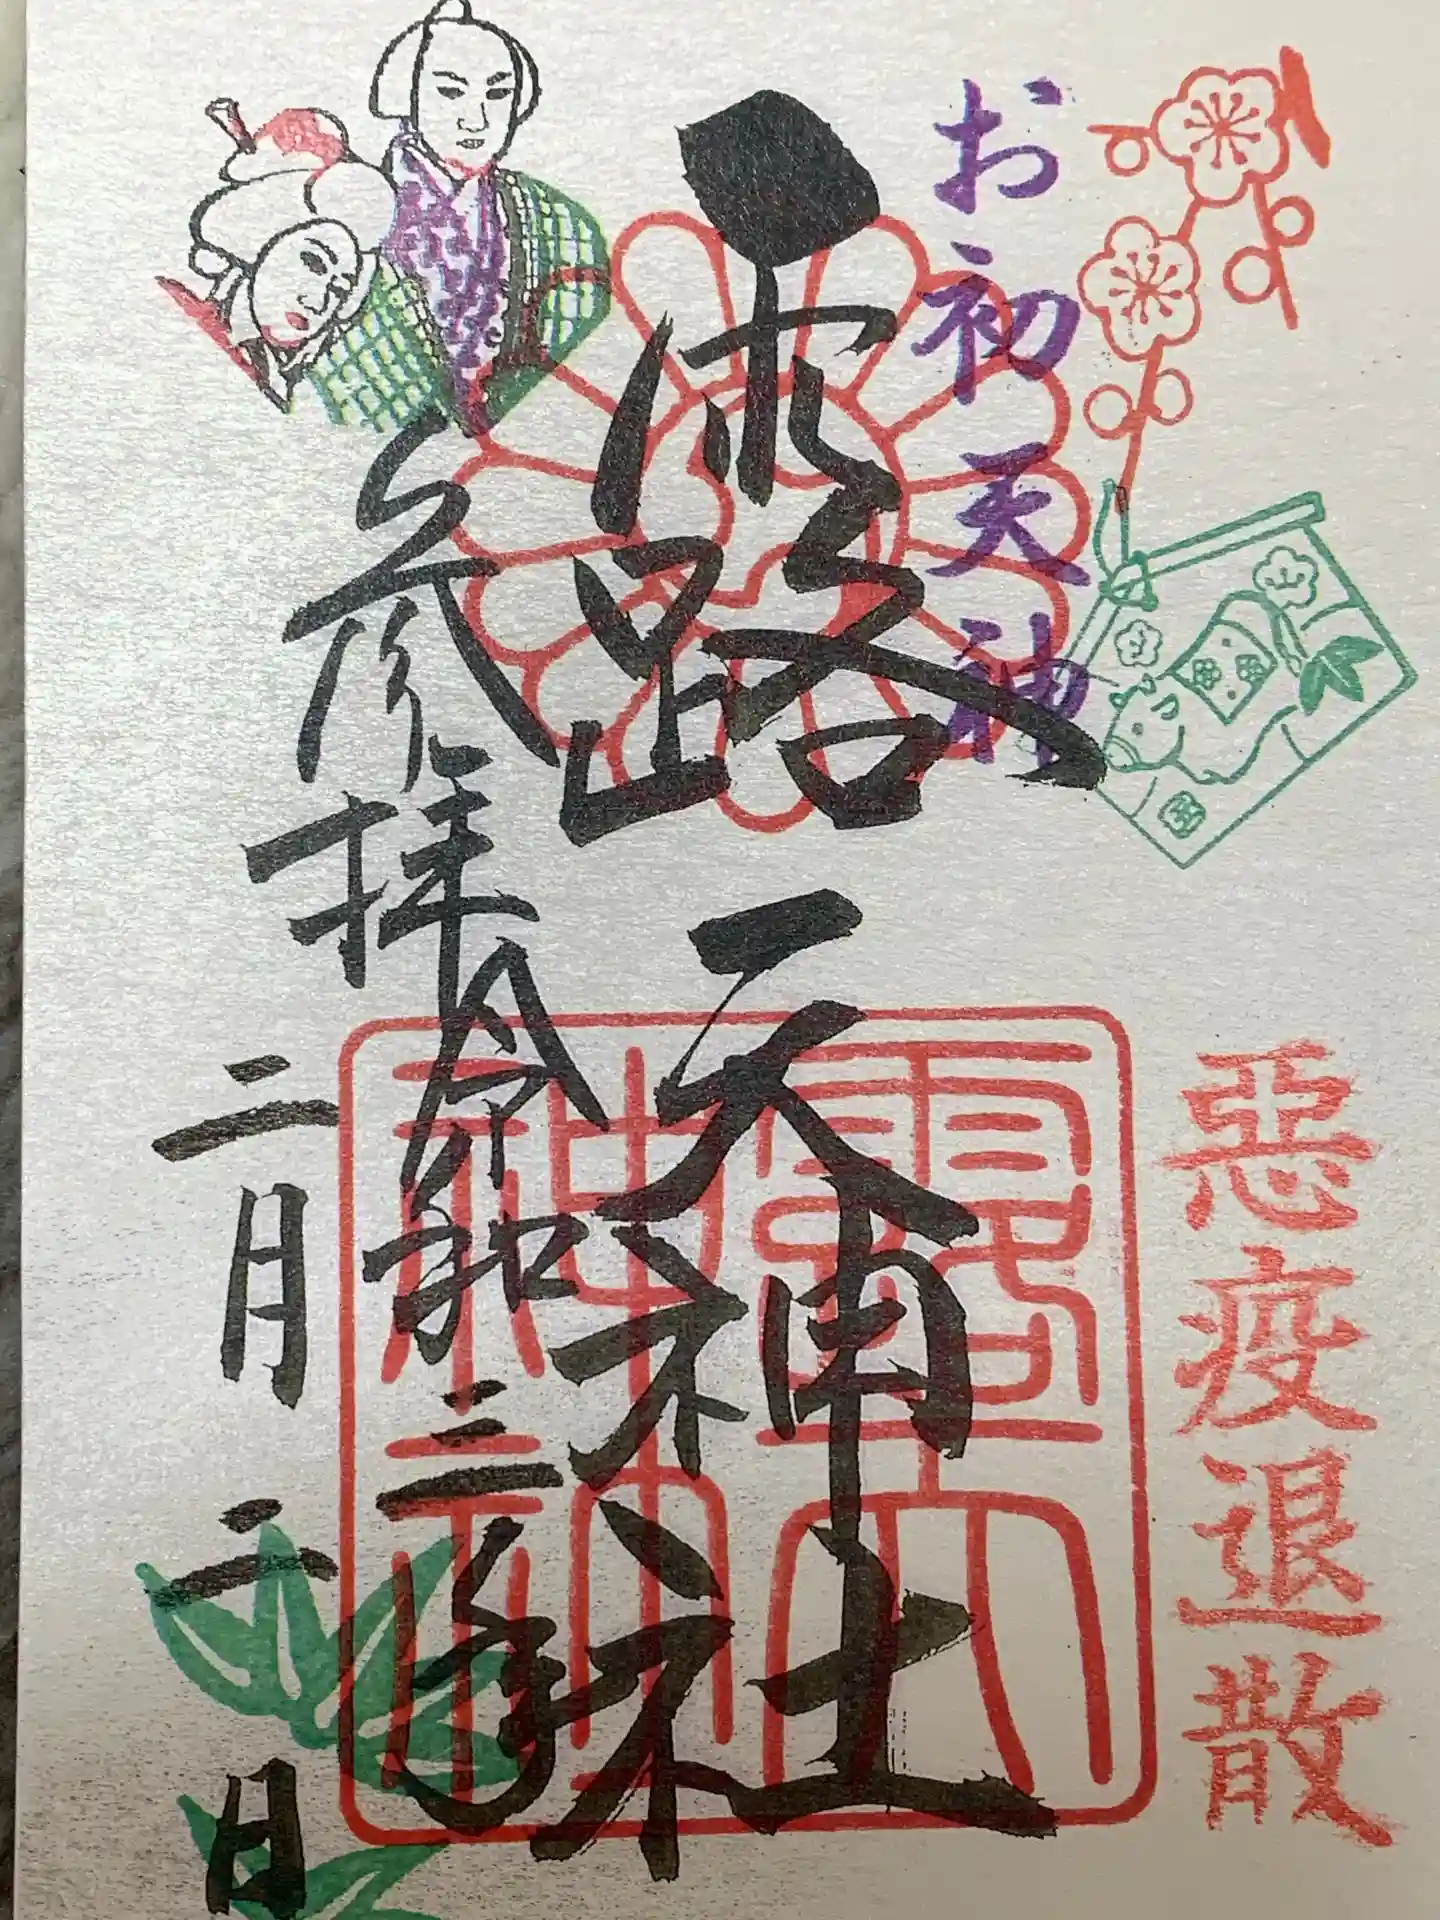 お初天神
惡疫退散
露天神社
露天神社
参拝
令和二年
二月二日